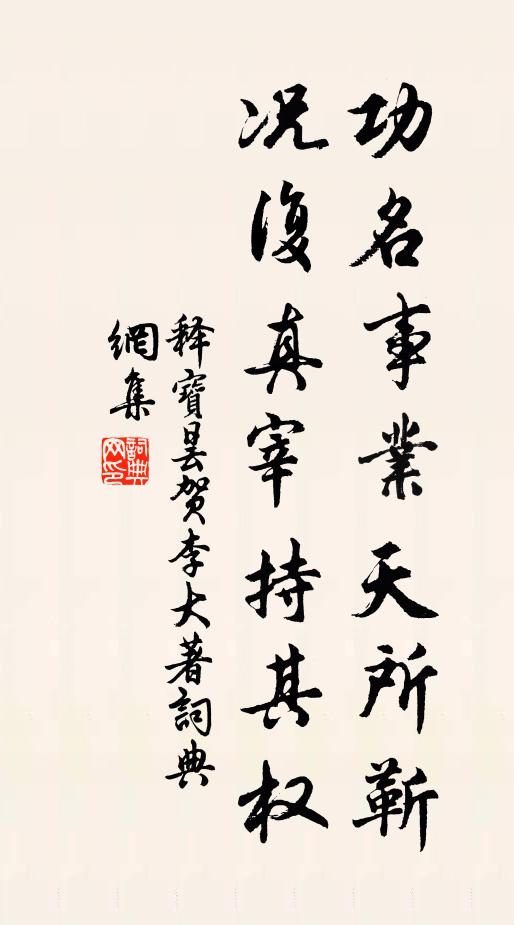 功名事業天所靳
况復真宰持其权
释寶昙贺李大著詞典
網集
詞典网印